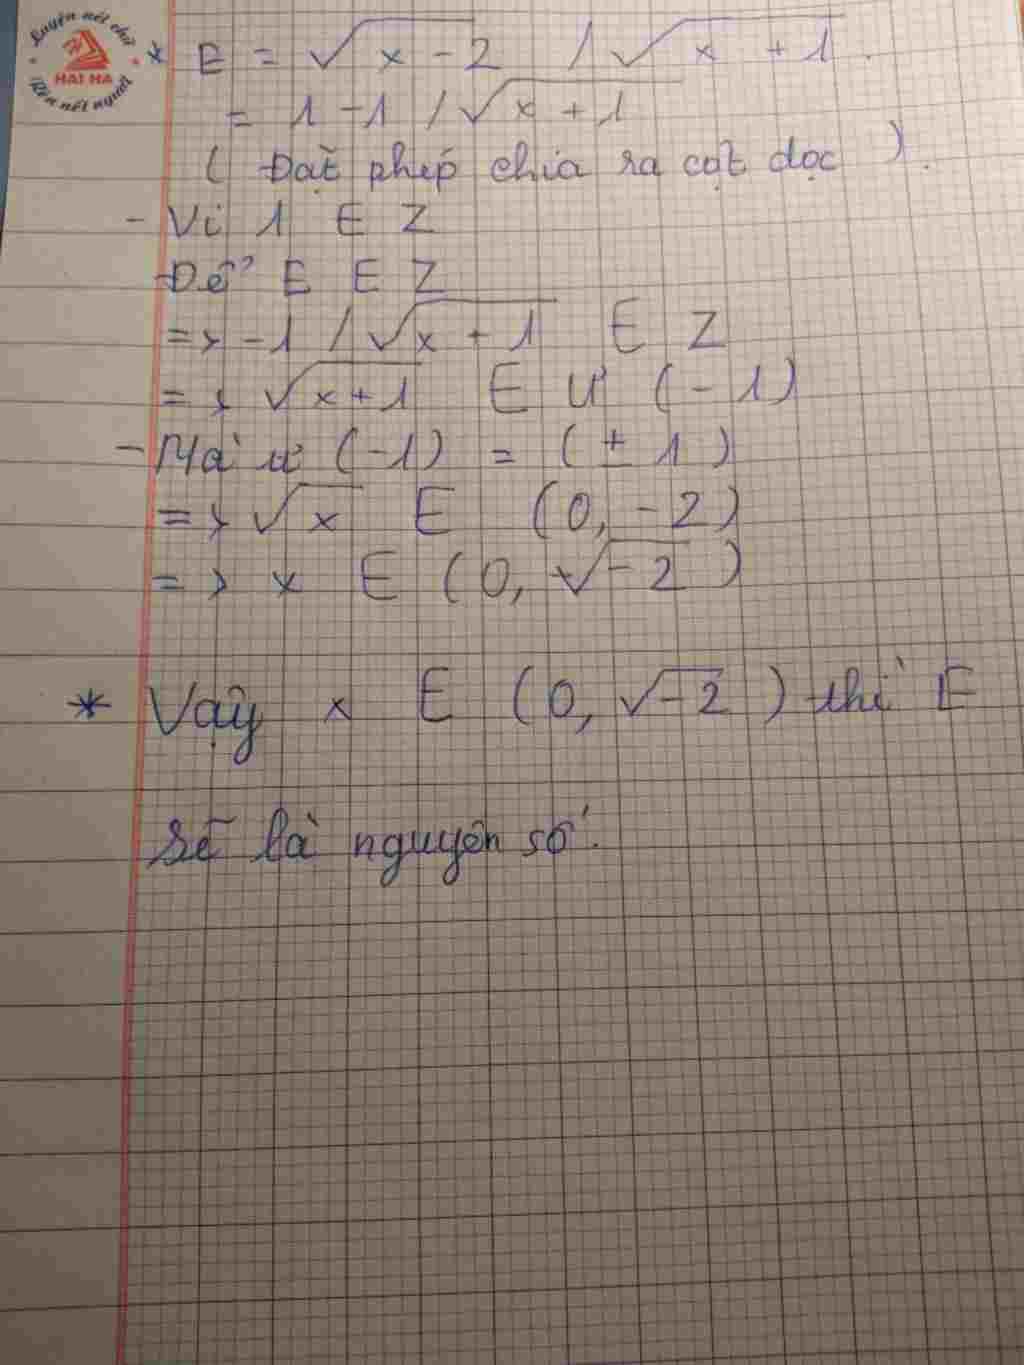 Luyện nét chữ
HAI HA
Rèn nết người
* E = √x - 2 / √x + 1.
= 1 - 1 / √x + 1
( Đặt phép chia ra cột dọc ).
- Vì 1 E Z
Để E E Z
=> -1 / √x + 1 E Z
=> √x+1 E Ư (-1)
- Mà ư (-1) = (± 1)
=> √x E (0, -2)
=> x E (0, √-2)
* Vậy x E (0, √-2) thì E
sẽ là nguyên số.